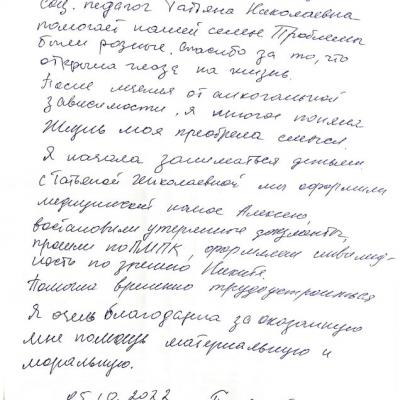 соц. педагог Татьяна Николаевна
помогает нашей семье. Проблемы
были разные. Спасибо за то, что
открыла глаза на жизнь.
После лечения от алкогольной
зависимости, я многое поняла
Жизнь моя преобрела смысл.
Я начала заниматься детьми
с Татьяной Николаевной мы оформили
медицинский полис Алексею,
востановили утерянные документы,
прошли ПМПК, оформили инвалид-
ность по зрению Никите.
Помогла временно трудоустроиться
Я очень благодарна за оказанную
мне помощь материальную и
моральную.
05.10.2022